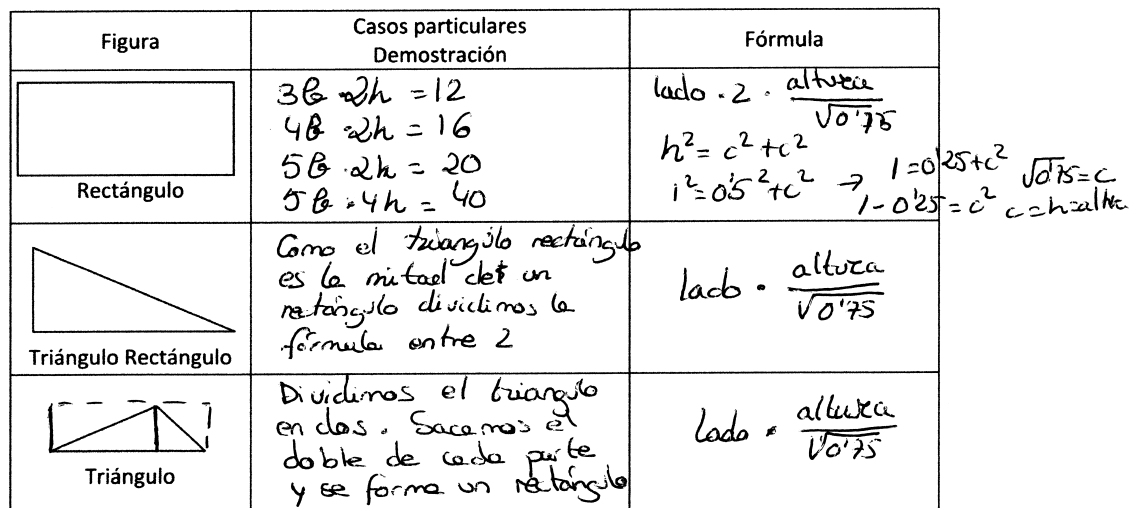 Figura
Casos particulares
Demostración
Fórmula
Rectángulo
3b · 2h = 12
4b · 2h = 16
5b · 2h = 20
5b · 4h = 40
lado · 2 · altura / √0'75
h² = c² + c²
1² = 0'5² + c² → 1 = 0'25 + c² √0'75 = c
1 - 0'25 = c² c = h = altura
Triángulo Rectángulo
Como el triangulo rectángulo
es la mitad del un
rectángulo dividimos la
fórmula entre 2
lado · altura / √0'75
Triángulo
Dividimos el triangulo
en dos. Sacamos el
doble de cada parte
y se forma un rectángulo
lado · altura / √0'75